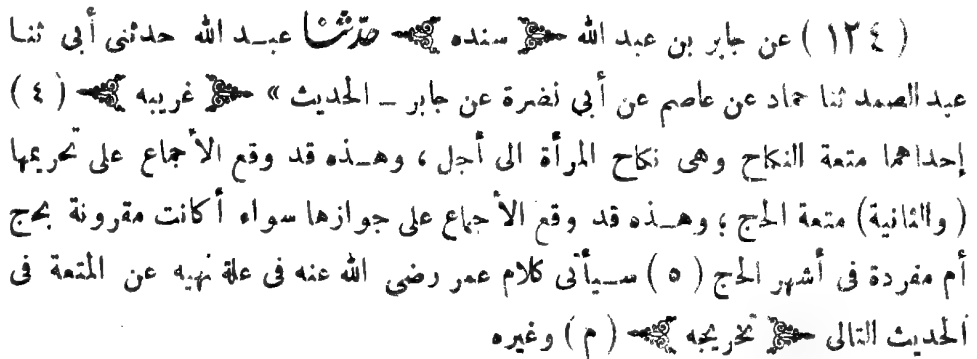 ( ١٢٤ ) عن جابر بن عبد الله ﴿ سنده ﴾ حدثنا عبد الله حدثنى أبى ثنا
عبد الصمد ثنا حماد عن عاصم عن أبي نضرة عن جابر – الحديث » ﴿ غريبه ﴾ ( ٤ )
إحداهما متعة النكاح وهى نكاح المرأة الى أجل ، وهذه قد وقع الأجماع على تحريمها
( والثانية ) متعة الحج ؛ وهذه قد وقع الأجماع على جوازها سواء أكانت مقرونة بحج
أم مفردة فى أشهر الحج ( ٥ ) سيأتى كلام عمر رضى الله عنه فى علة نهيه عن المتعة فى
الحديث التالى ﴿ تخريجه ﴾ ( م ) وغيره